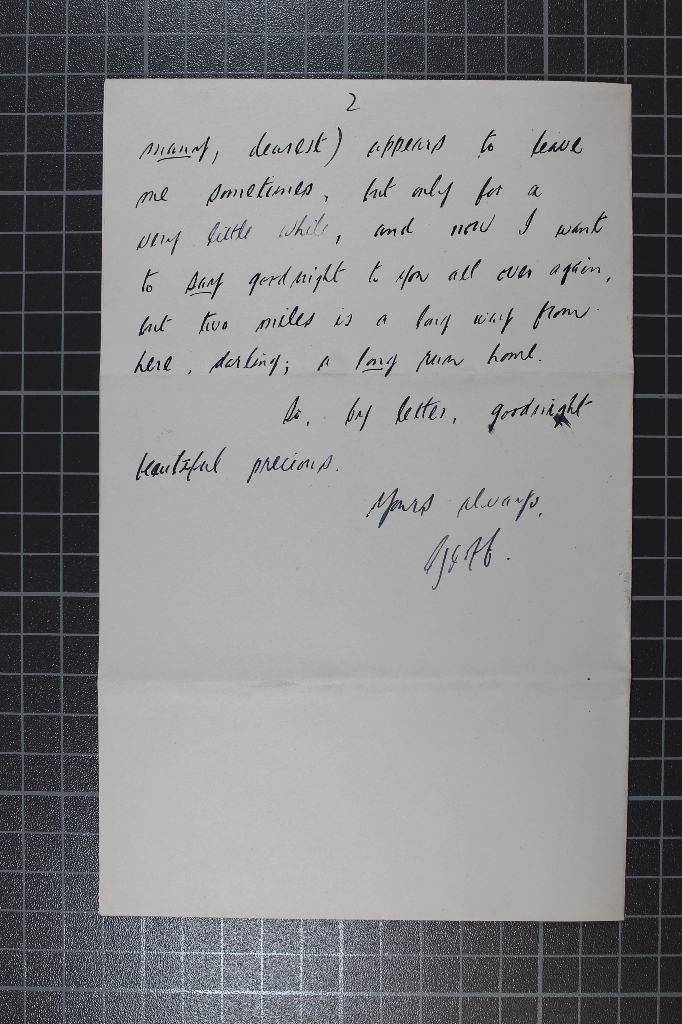 2
many, dearest) appears to leave
me sometimes, but only for a
very little while, and now I want
to say goodnight to you all over again,
but two miles is a long way from
here, darling; a long run home.
So, by letter, goodnight
beautiful precious.
Yours always,